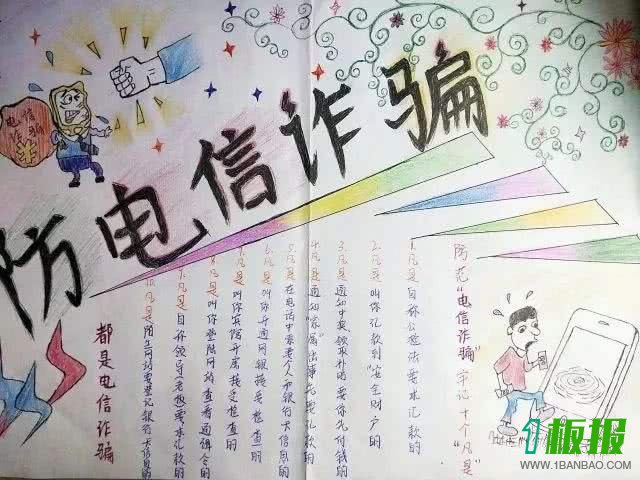 防电信诈骗
电信
诈骗
¥
防范"电信诈骗"牢记十个"凡是"
1.凡是自称公检法要求汇款的
2.凡是叫你汇款到"安全账户"的
3.凡是通知中奖、领取补贴要你先付钱的
4.凡是通知"家属"出事先要汇款的
5.凡是在电话中索要个人和银行卡信息的
6.凡是叫你开通网银接受检查的
7.凡是叫你宾馆开房接受检查的
8.凡是叫你登陆网站查看通缉令的
9.凡是自称领导老板要求汇款的
10.凡是陌生网站要登记银行卡信息的
都是电信诈骗
1板报
WWW.1BANBAO.COM